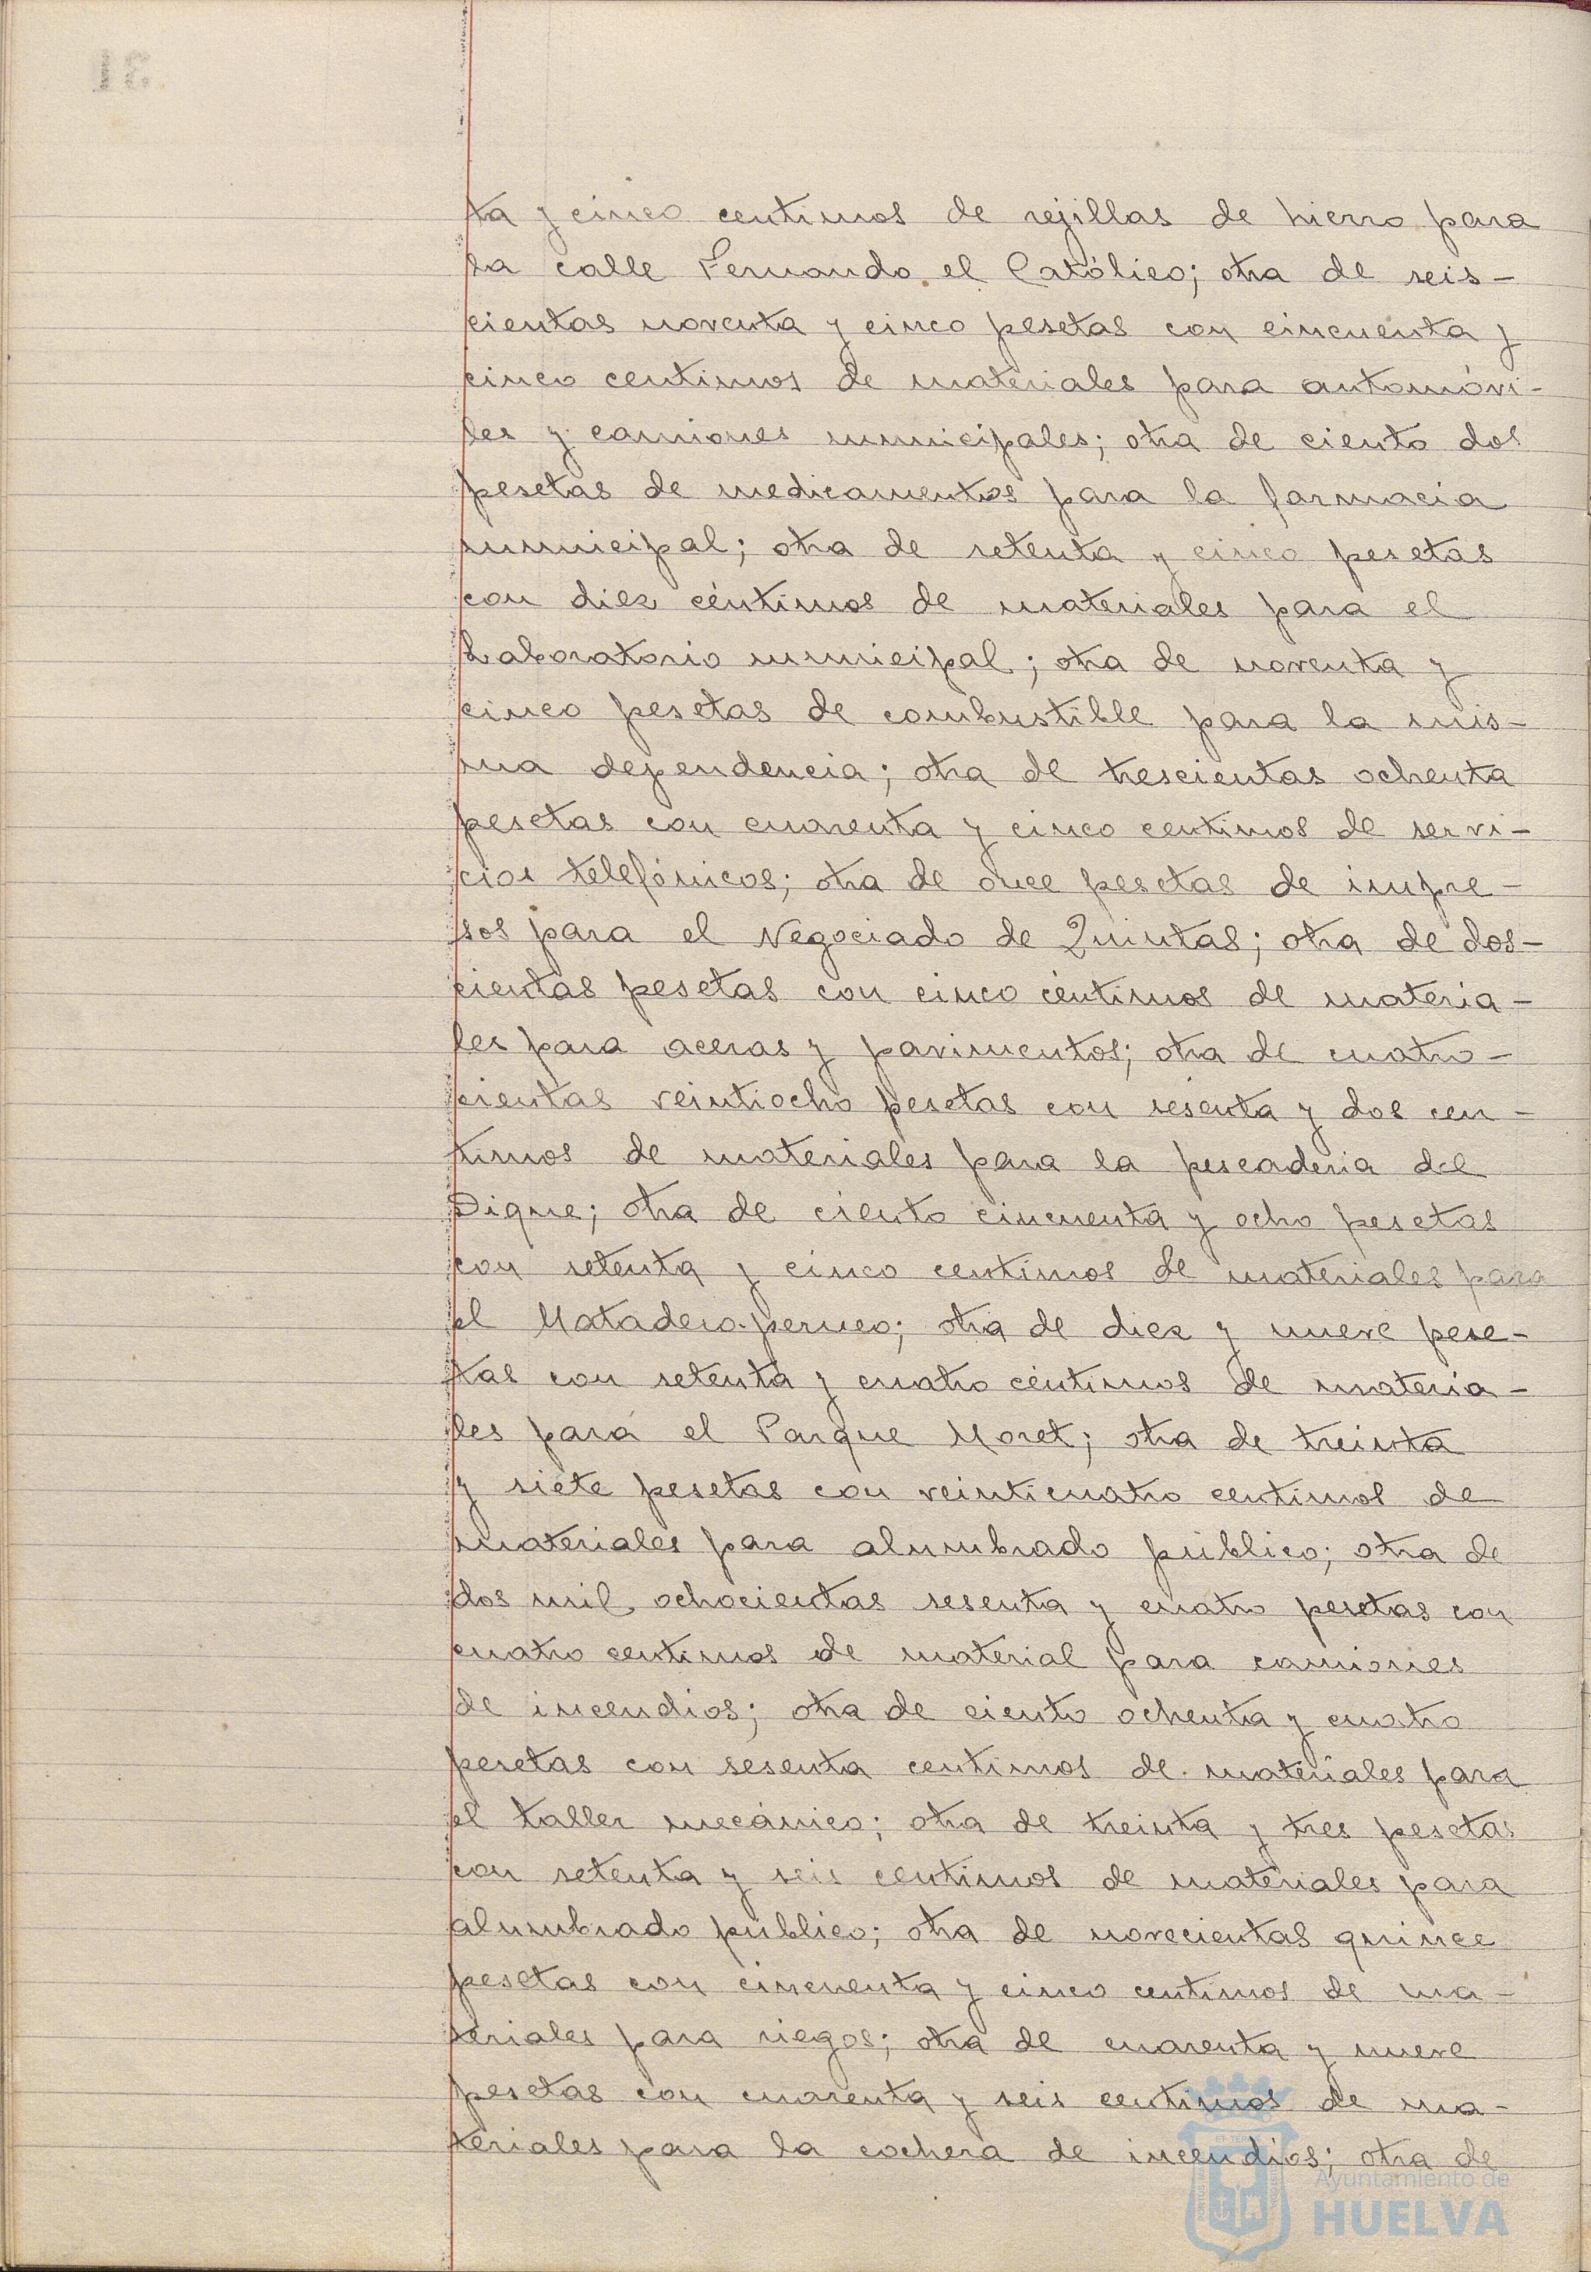 ta y cinco centimos de rejillas de hierro para
la calle Fernando el Católico; otra de seis-
cientas noventa y cinco pesetas con cincuenta y
cinco centimos de materiales para automóvi-
les y camiones municipales; otra de ciento dos
pesetas de medicamentos para la farmacia
municipal; otra de setenta y cinco pesetas
con diez céntimos de materiales para el
Laboratorio municipal; otra de noventa y
cinco pesetas de combustible para la mis-
ma dependencia; otra de trescientas ochenta
pesetas con cuarenta y cinco centimos de servi-
cios telefónicos; otra de once pesetas de impre-
sos para el Negociado de Quintas; otra de dos-
cientas pesetas con cinco céntimos de materia-
les para aceras y pavimentos; otra de cuatro-
cientas veintiocho pesetas con sesenta y dos cen-
timos de materiales para la pescaderia del
Dique; otra de ciento cincuenta y ocho pesetas
con setenta y cinco centimos de materiales para
el Matadero perneo; otra de diez y nueve pese-
tas con setenta y cuatro céntimos de materia-
les para el Parque Moret; otra de treinta
y siete pesetas con veinticuatro centimos de
materiales para alumbrado público; otra de
dos mil ochocientas sesenta y cuatro pesetas con
cuatro centimos de material para camiones
de incendios; otra de ciento ochenta y cuatro
pesetas con sesenta centimos de materiales para
el taller mecánico; otra de treinta y tres pesetas
con setenta y seis centimos de materiales para
alumbrado público; otra de novecientas quince
pesetas con cincuenta y cinco centimos de ma-
teriales para riegos; otra de cuarenta y nueve
pesetas con cuarenta y seis centimos de ma-
teriales para la cochera de incendios; otra de
Ayuntamiento de
HUELVA